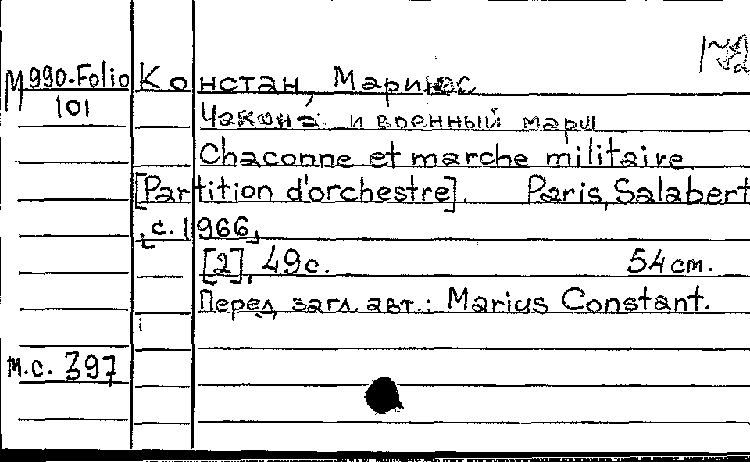 М990-Folio
101
Констан, Мариус
Чакона и военный марш
Chaconne et marche militaire
[Partition d'orchestre]. Paris, Salabert
, c. 1966,
[2], 49 с. 54 см.
Перед загл. авт.: Marius Constant.
м.с. 397